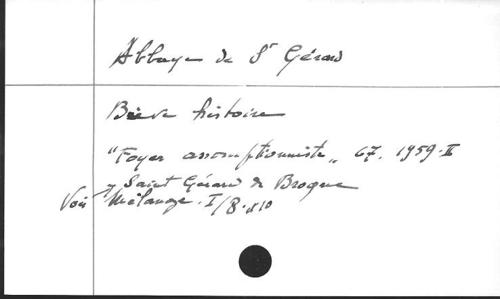 Abbaye de St Gérard
Brève histoire
"Foyer assomptionniste" 67. 1959-II
Saint Gérard de Brogne
Voir Mélange. I/8.